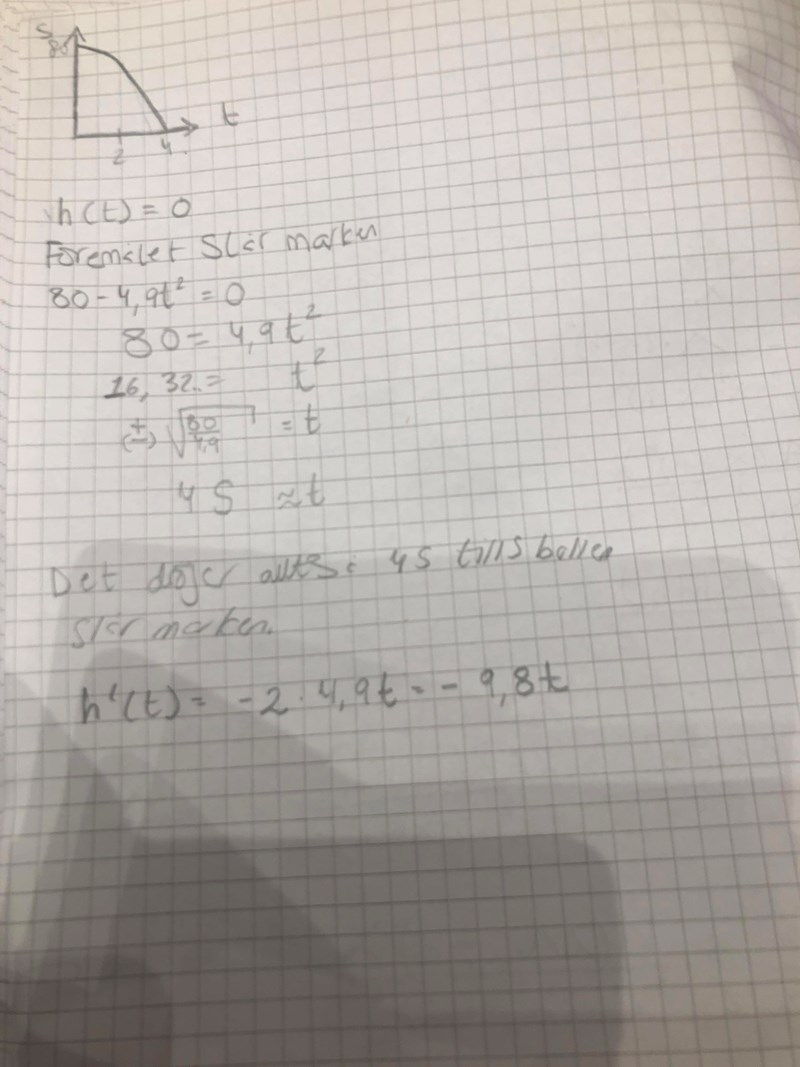 S
80
t
2 4
h(t) = 0
Föremålet Slår marken
80 - 4,9t² = 0
80 = 4,9t²
16,32.. = t²
(±) √80/4,9 = t
4 S ≈ t
Det dröjer alltså 4S tills bollen
Slår marken.
h'(t) = -2 · 4,9t = -9,8t